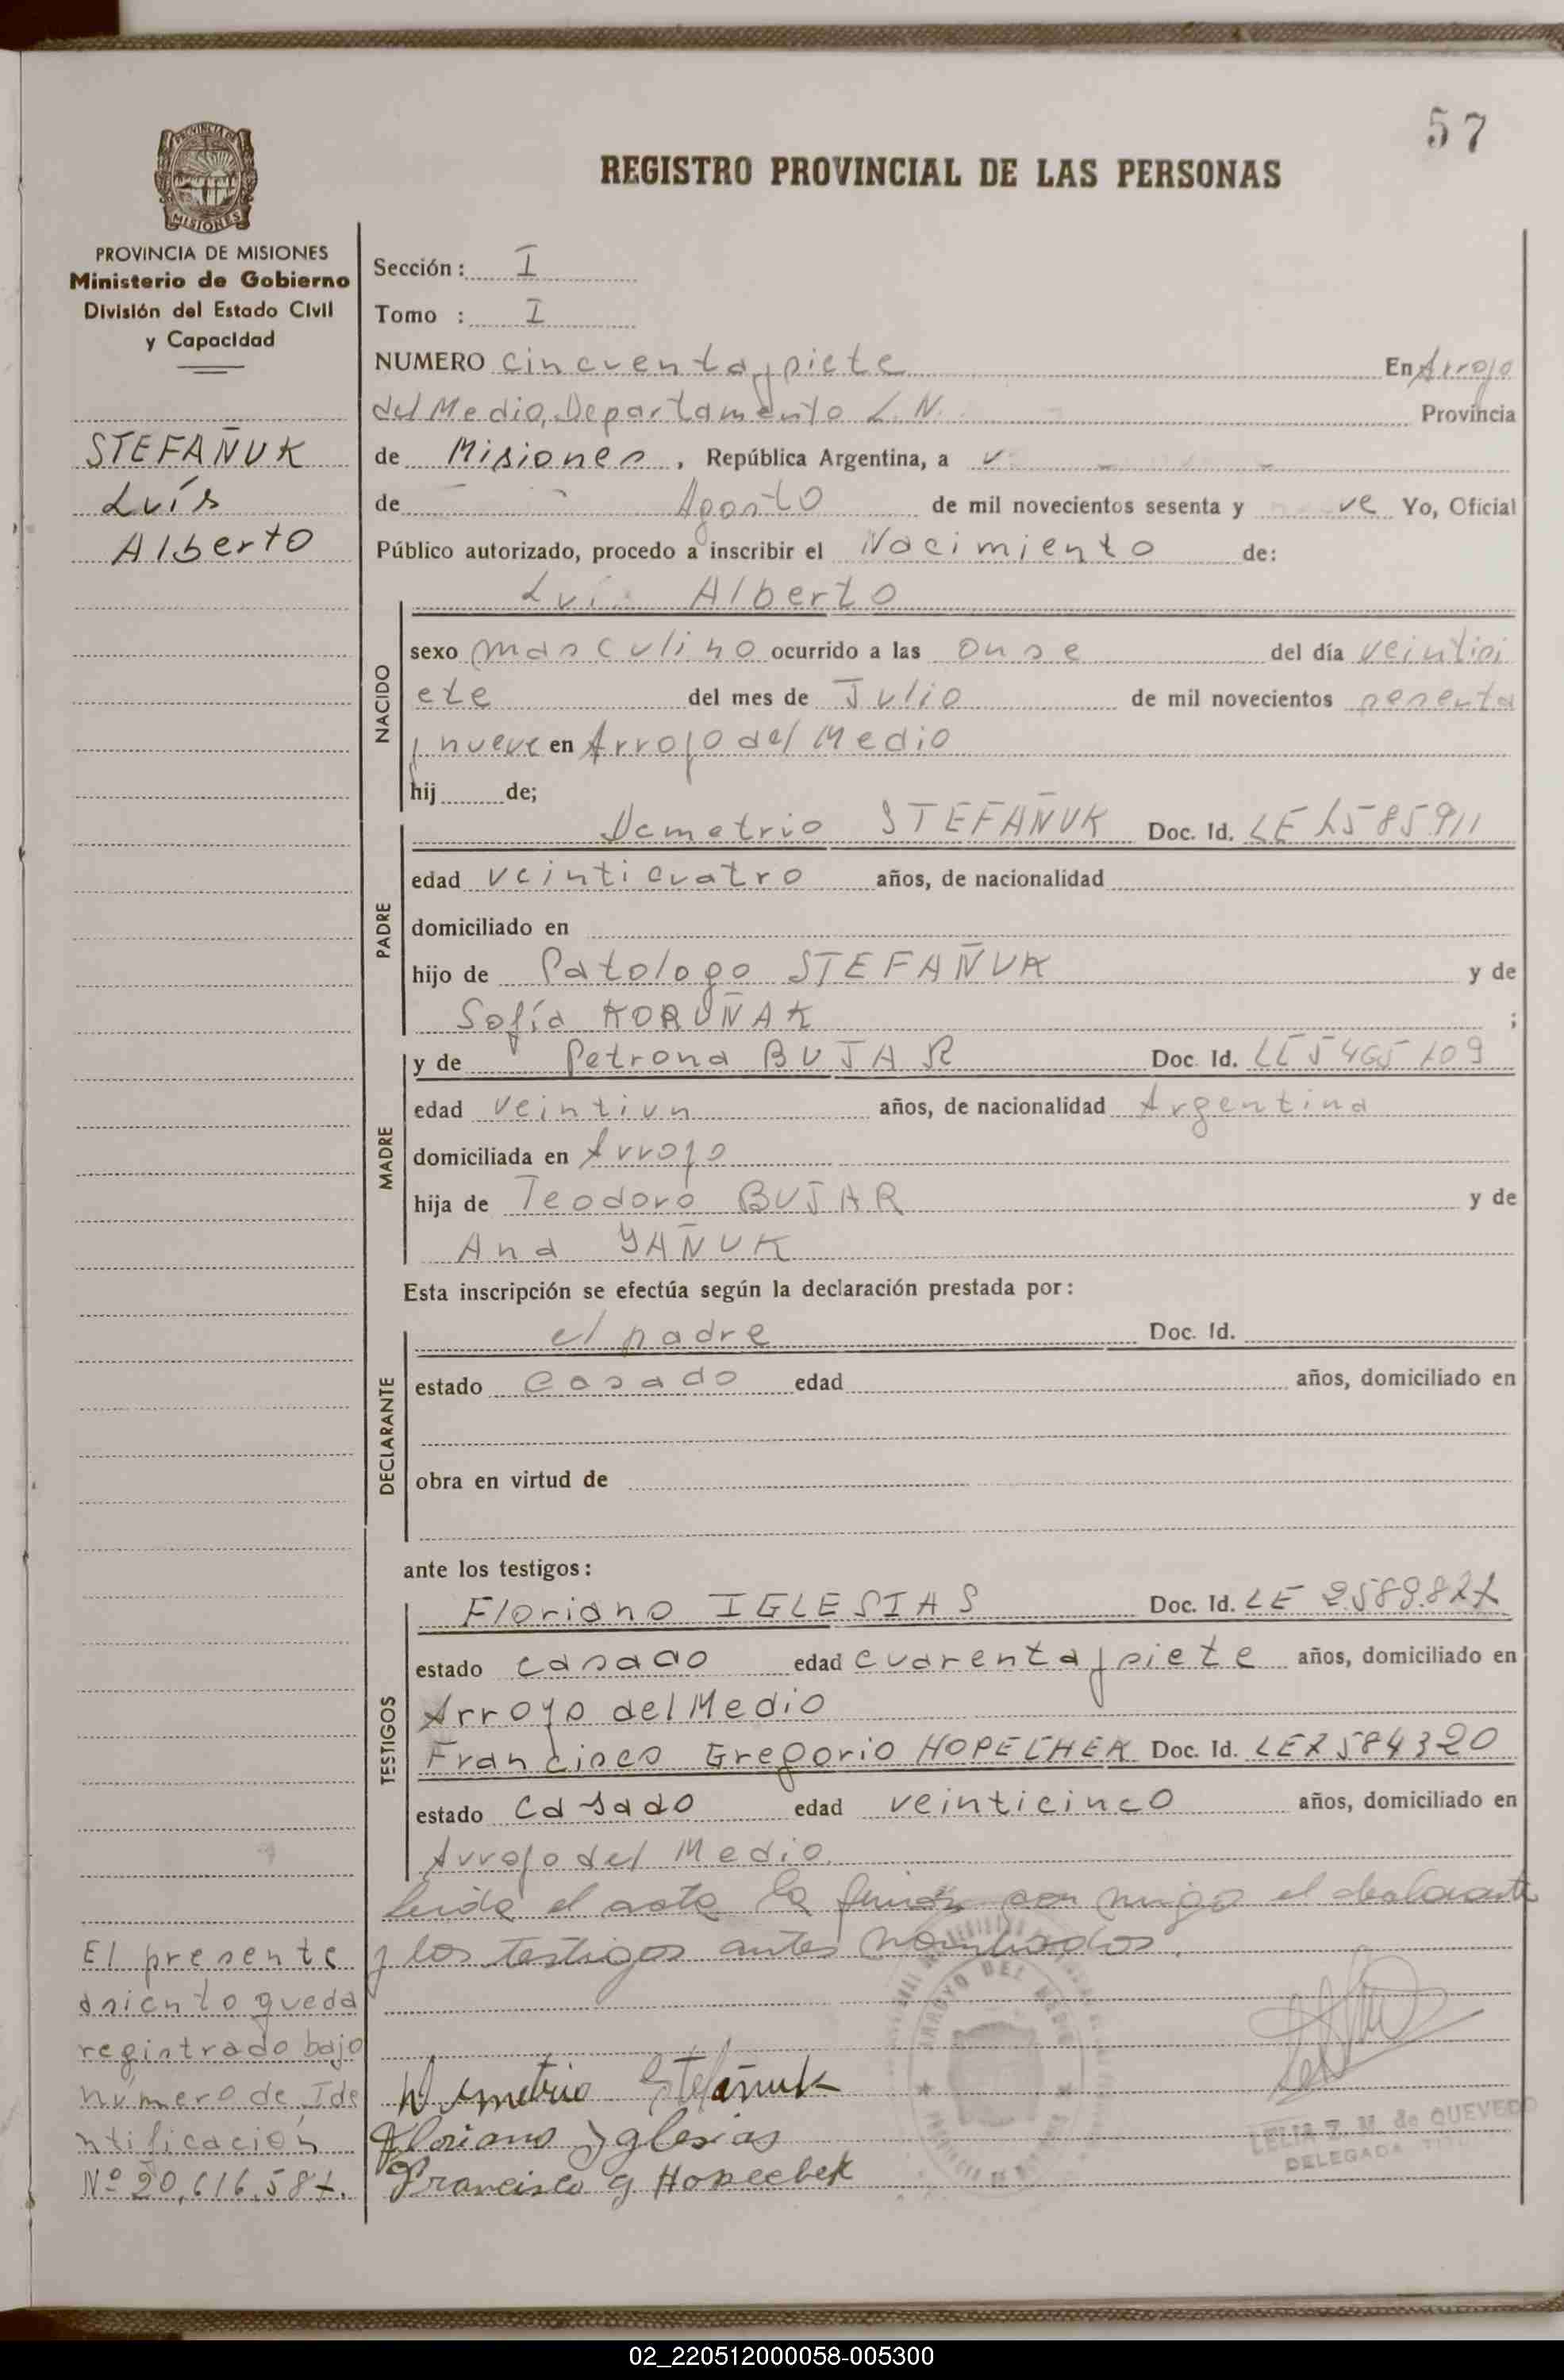 57
REGISTRO PROVINCIAL DE LAS PERSONAS
PROVINCIA DE MISIONES
Ministerio de Gobierno
División del Estado Civil
y Capacidad
STEFAÑUK
Luís
Alberto
Sección: I
Tomo : I
NUMERO cincuenta y siete En Arroyo
del Medio, Departamento L. N. Provincia
de Misiones, República Argentina, a
de Agosto de mil novecientos sesenta y ve Yo, Oficial
Público autorizado, procedo a inscribir el Nacimiento de:
Luis Alberto
NACIDO
sexo masculino ocurrido a las onse del día veintisi
ete del mes de Julio de mil novecientos sesenta
y nueve en Arroyo del Medio
hij de;
PADRE
Demetrio STEFAÑUK Doc. Id. LE
edad veinticuatro años, de nacionalidad
domiciliado en
hijo de Patologo STEFAÑUK y de
Sofía KORUÑAK ;
MADRE
y de Petrona BUJAR Doc. Id. LE
edad veintiun años, de nacionalidad Argentina
domiciliada en Arroyo
hija de Teodoro BUJAR y de
Ana YAÑUK
Esta inscripción se efectúa según la declaración prestada por:
DECLARANTE
el padre Doc. Id.
estado casado edad años, domiciliado en
obra en virtud de
ante los testigos:
TESTIGOS
Floriano IGLESIAS Doc. Id. LE
estado casado edad cuarenta y siete años, domiciliado en
Arroyo del Medio
Francisco Gregorio HOPECHEK Doc. Id. LE
estado casado edad veinticinco años, domiciliado en
Arroyo del Medio
Leida el acta la firman con migo el declarante
y los testigos antes nombrados.
El presente
asiento queda
registrado bajo
número de Ide
ntificación
Nº 20.616.587.
Demetrio Stefañuk
Floriano Yglesias
Francisco G Hopechek
ARROYO DEL MEDIO
LELIA Z. M. de QUEVEDO
DELEGADA
02_220512000058-005300